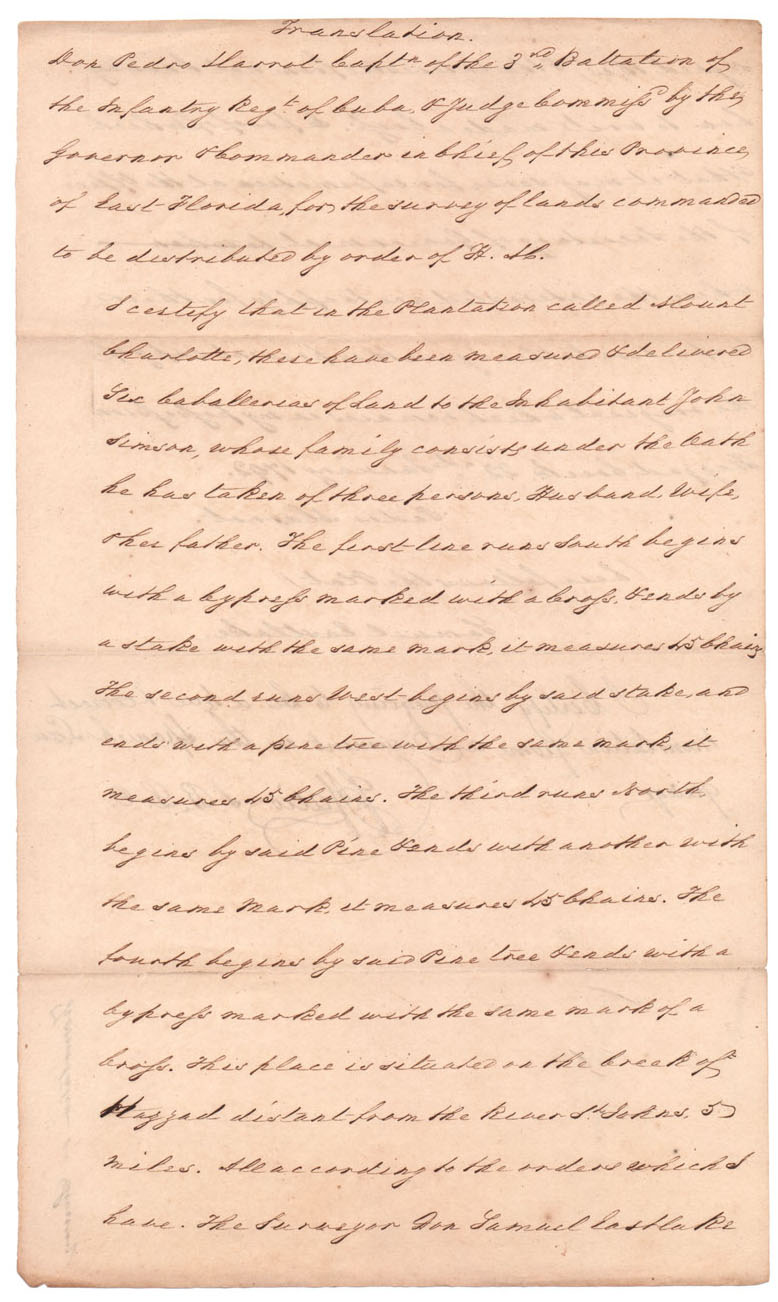 Translation.
Don Pedro Marrot Captn of the 3rd, Battalion of
the Infantry Regt of Cuba, & Judge Commissd by the
Governor & Commander in Chief of this Province
of East Florida, for the survey of lands commanded
to be distributed by order of H. M.
I certify that in the Plantation called Mount
Charlotte, there have been measured & delivered
Six Caballerias of Land to the Inhabitant John
Simson, whose family consists under the Oath
he has taken of three persons, Husband, Wife,
& her father. The first line runs South begins
with a Cypress marked with a Cross, & ends by
a stake with the same mark, it measures 45 Chains
The second runs West begins by said stake, and
ends with a pine tree with the same mark, it
measures 45 Chains. The third runs North,
begins by said Pine & ends with another with
the same Mark, it measures 45 Chains. The
fourth begins by said Pine tree & ends with a
Cypress marked with the same mark of a
Cross. This place is situated on the Creek of
Hazzad distant from the River St. Johns, 5
miles. All according to the orders which I
have. The Surveyor Don Samuel Eastlake